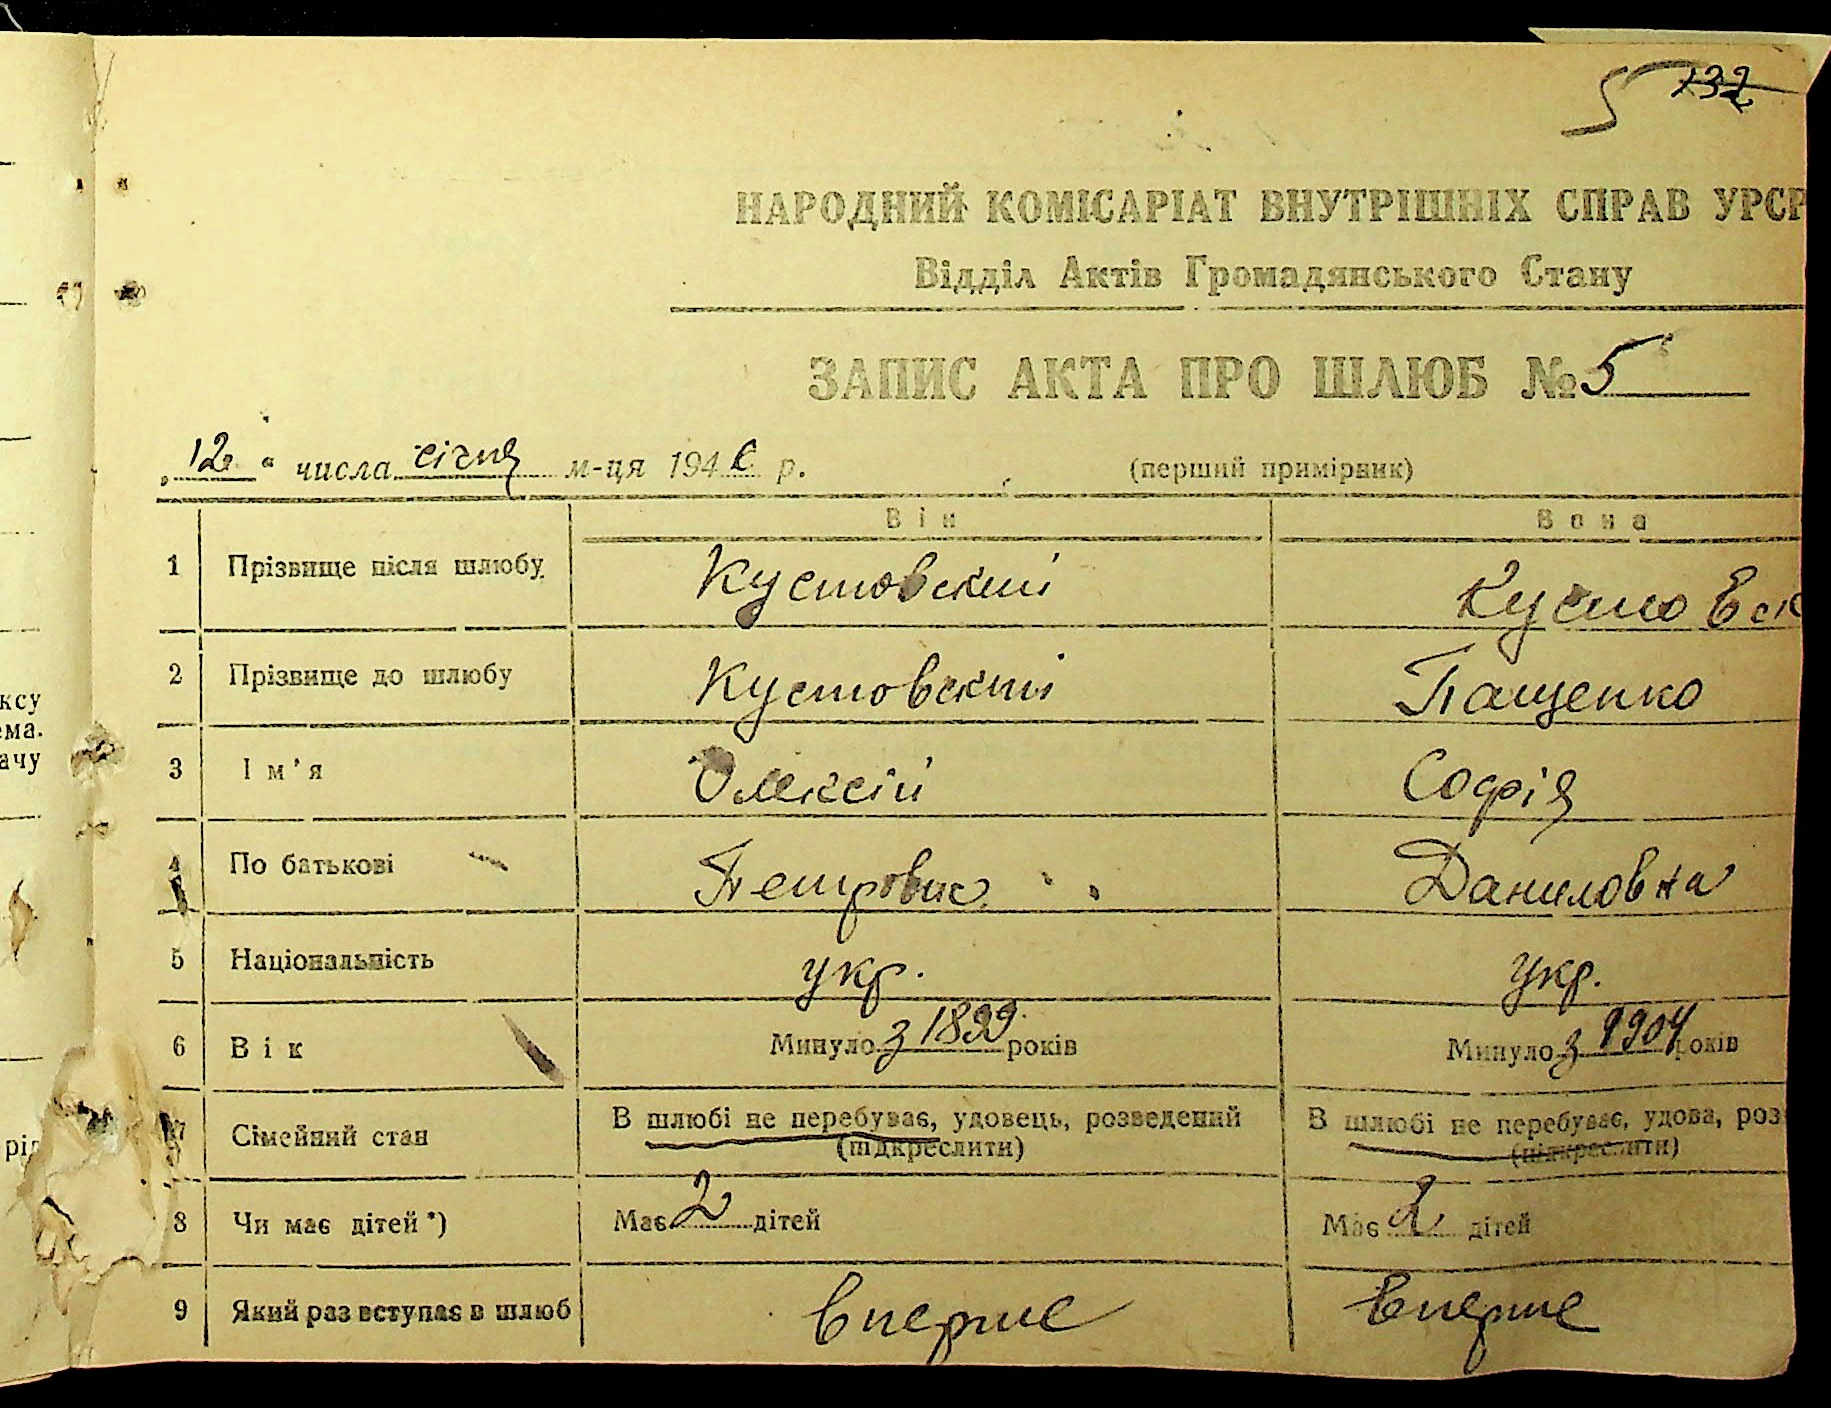 5 132
НАРОДНИЙ КОМІСАРІАТ ВНУТРІШНІХ СПРАВ УРСР
Відділ Актів Громадянського Стану
ЗАПИС АКТА ПРО ШЛЮБ № 5
„12“ числа січня м-ця 194 р. (перший примірник)
Він Вона
1 Прізвище після шлюбу Кустовский Кустовск
2 Прізвище до шлюбу Кустовский Пащенко
ксу
ема.
3 Ім'я Олексій Софія
ачу
4 По батькові Петрович Даниловна
5 Національність укр. укр.
6 Вік Минуло з 1899 років Минуло з 1904 років
7 Сімейний стан В шлюбі не перебуває, удовець, розведений В шлюбі не перебуває, удова, роз
(підкреслити) (підкреслити)
8 Чи має дітей*) Має 2 дітей Має 2 дітей
9 Який раз вступає в шлюб вперше вперше